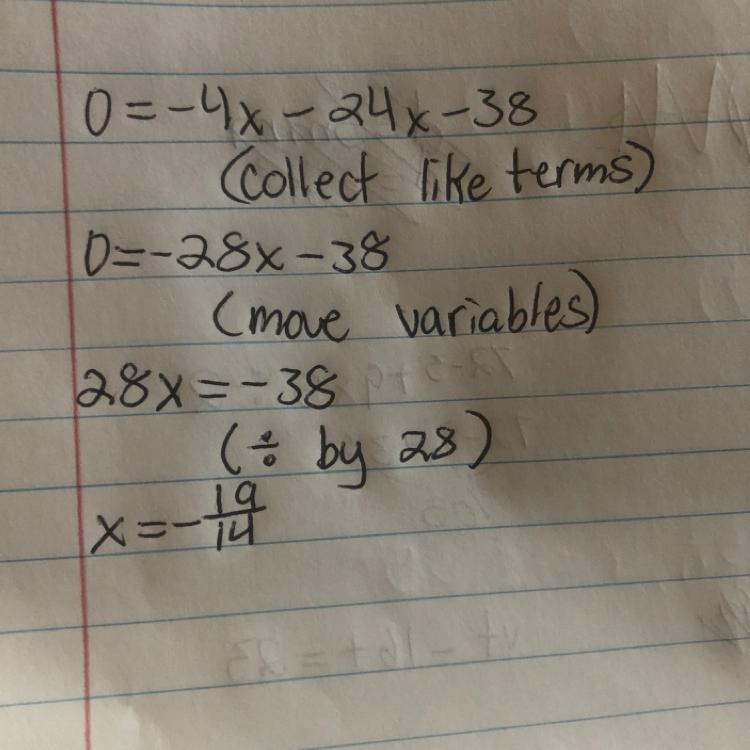 0=-4x-24x-38
(collect like terms)
0=-28x-38
(move variables)
28x=-38
(÷ by 28)
x=-19/14